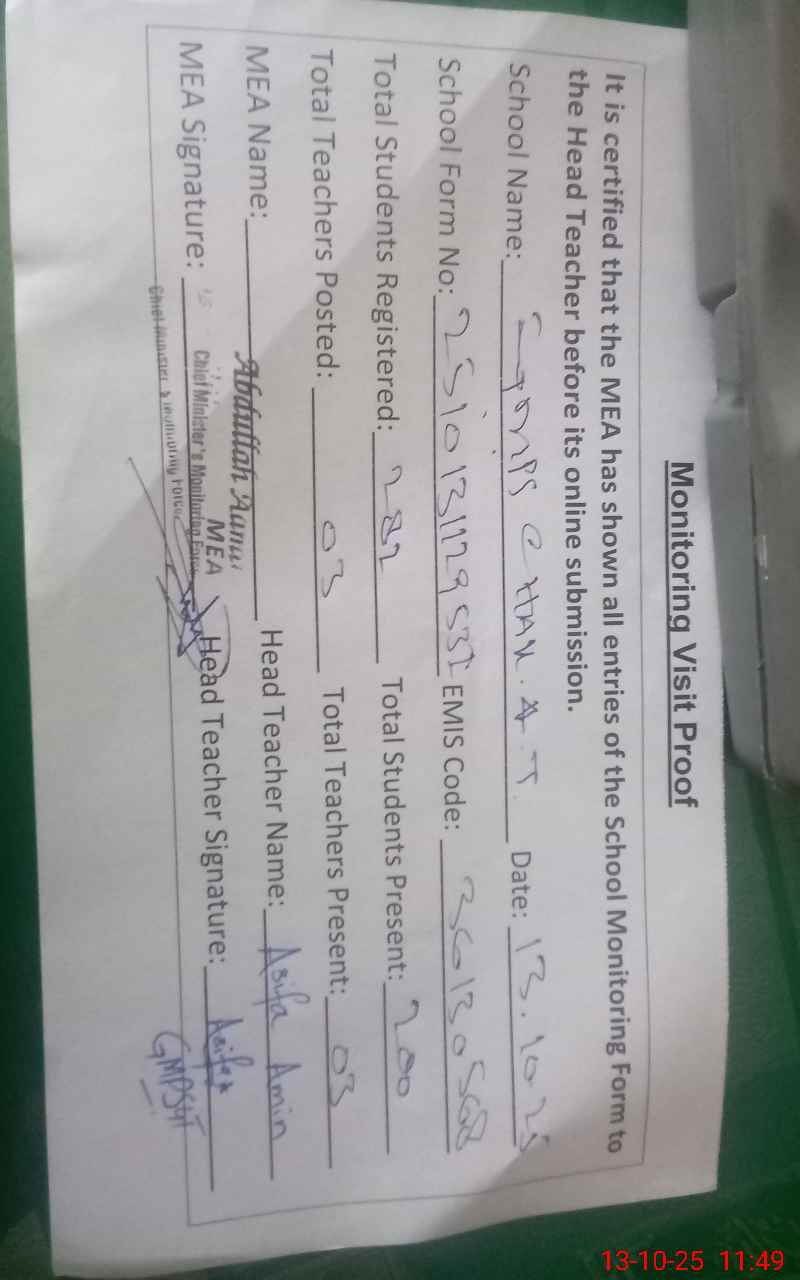 Monitoring Visit Proof
It is certified that the MEA has shown all entries of the School Monitoring Form to
the Head Teacher before its online submission.
School Name: GMPS CHAK. 4.T. Date: 13.10.25
School Form No: EMIS Code:
Total Students Registered: 282 Total Students Present: 200
Total Teachers Posted: 03 Total Teachers Present: 03
MEA Name: Abdullah Head Teacher Name: Asifa Amin
MEA
MEA Signature: Chief Minister's Monitoring Force Head Teacher Signature: Asifa
Chief Minister's Monitoring Force
13-10-25 11:49